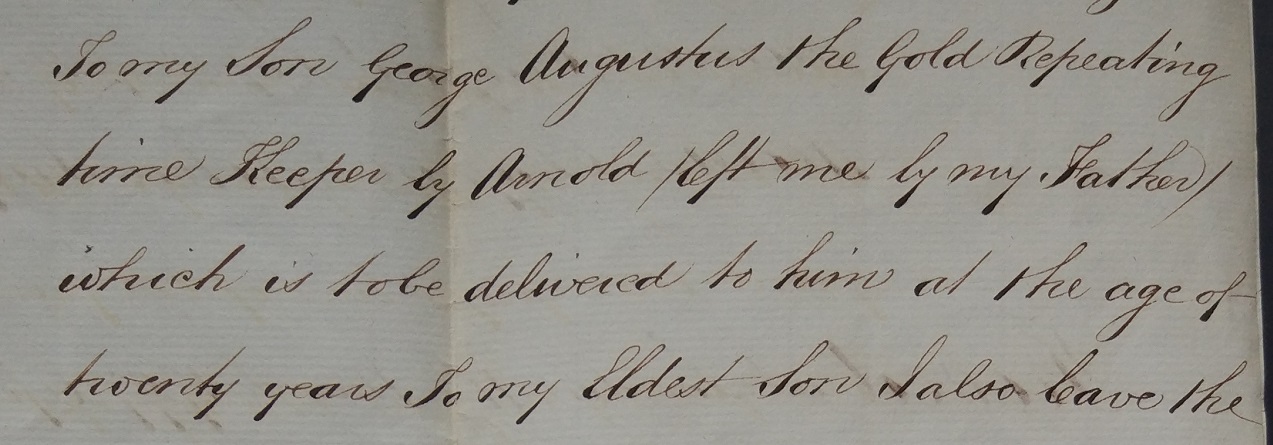 To my Son George Augustus the Gold Repeating
time Keeper by Arnold (left me by my Father)
which is to be delivered to him at the age of
twenty years To my Eldest Son I also leave the